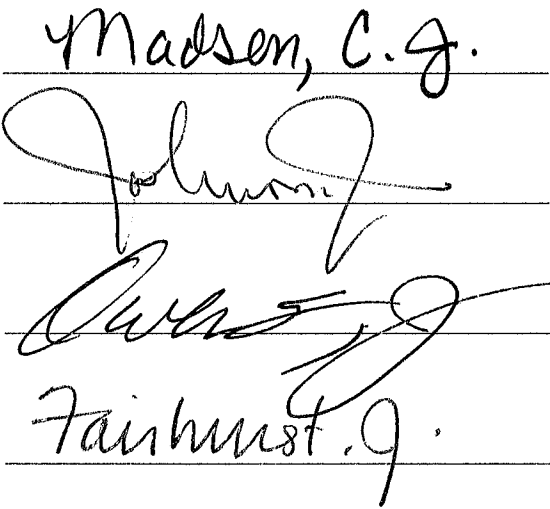 Madsen, C.J.
Johnson, J.
Owens, J.
Fairhurst, J.